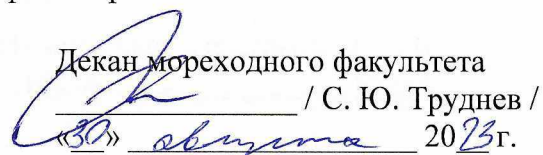 Декан мореходного факультета
/ С. Ю. Труднев /
«30» августа 2023г.